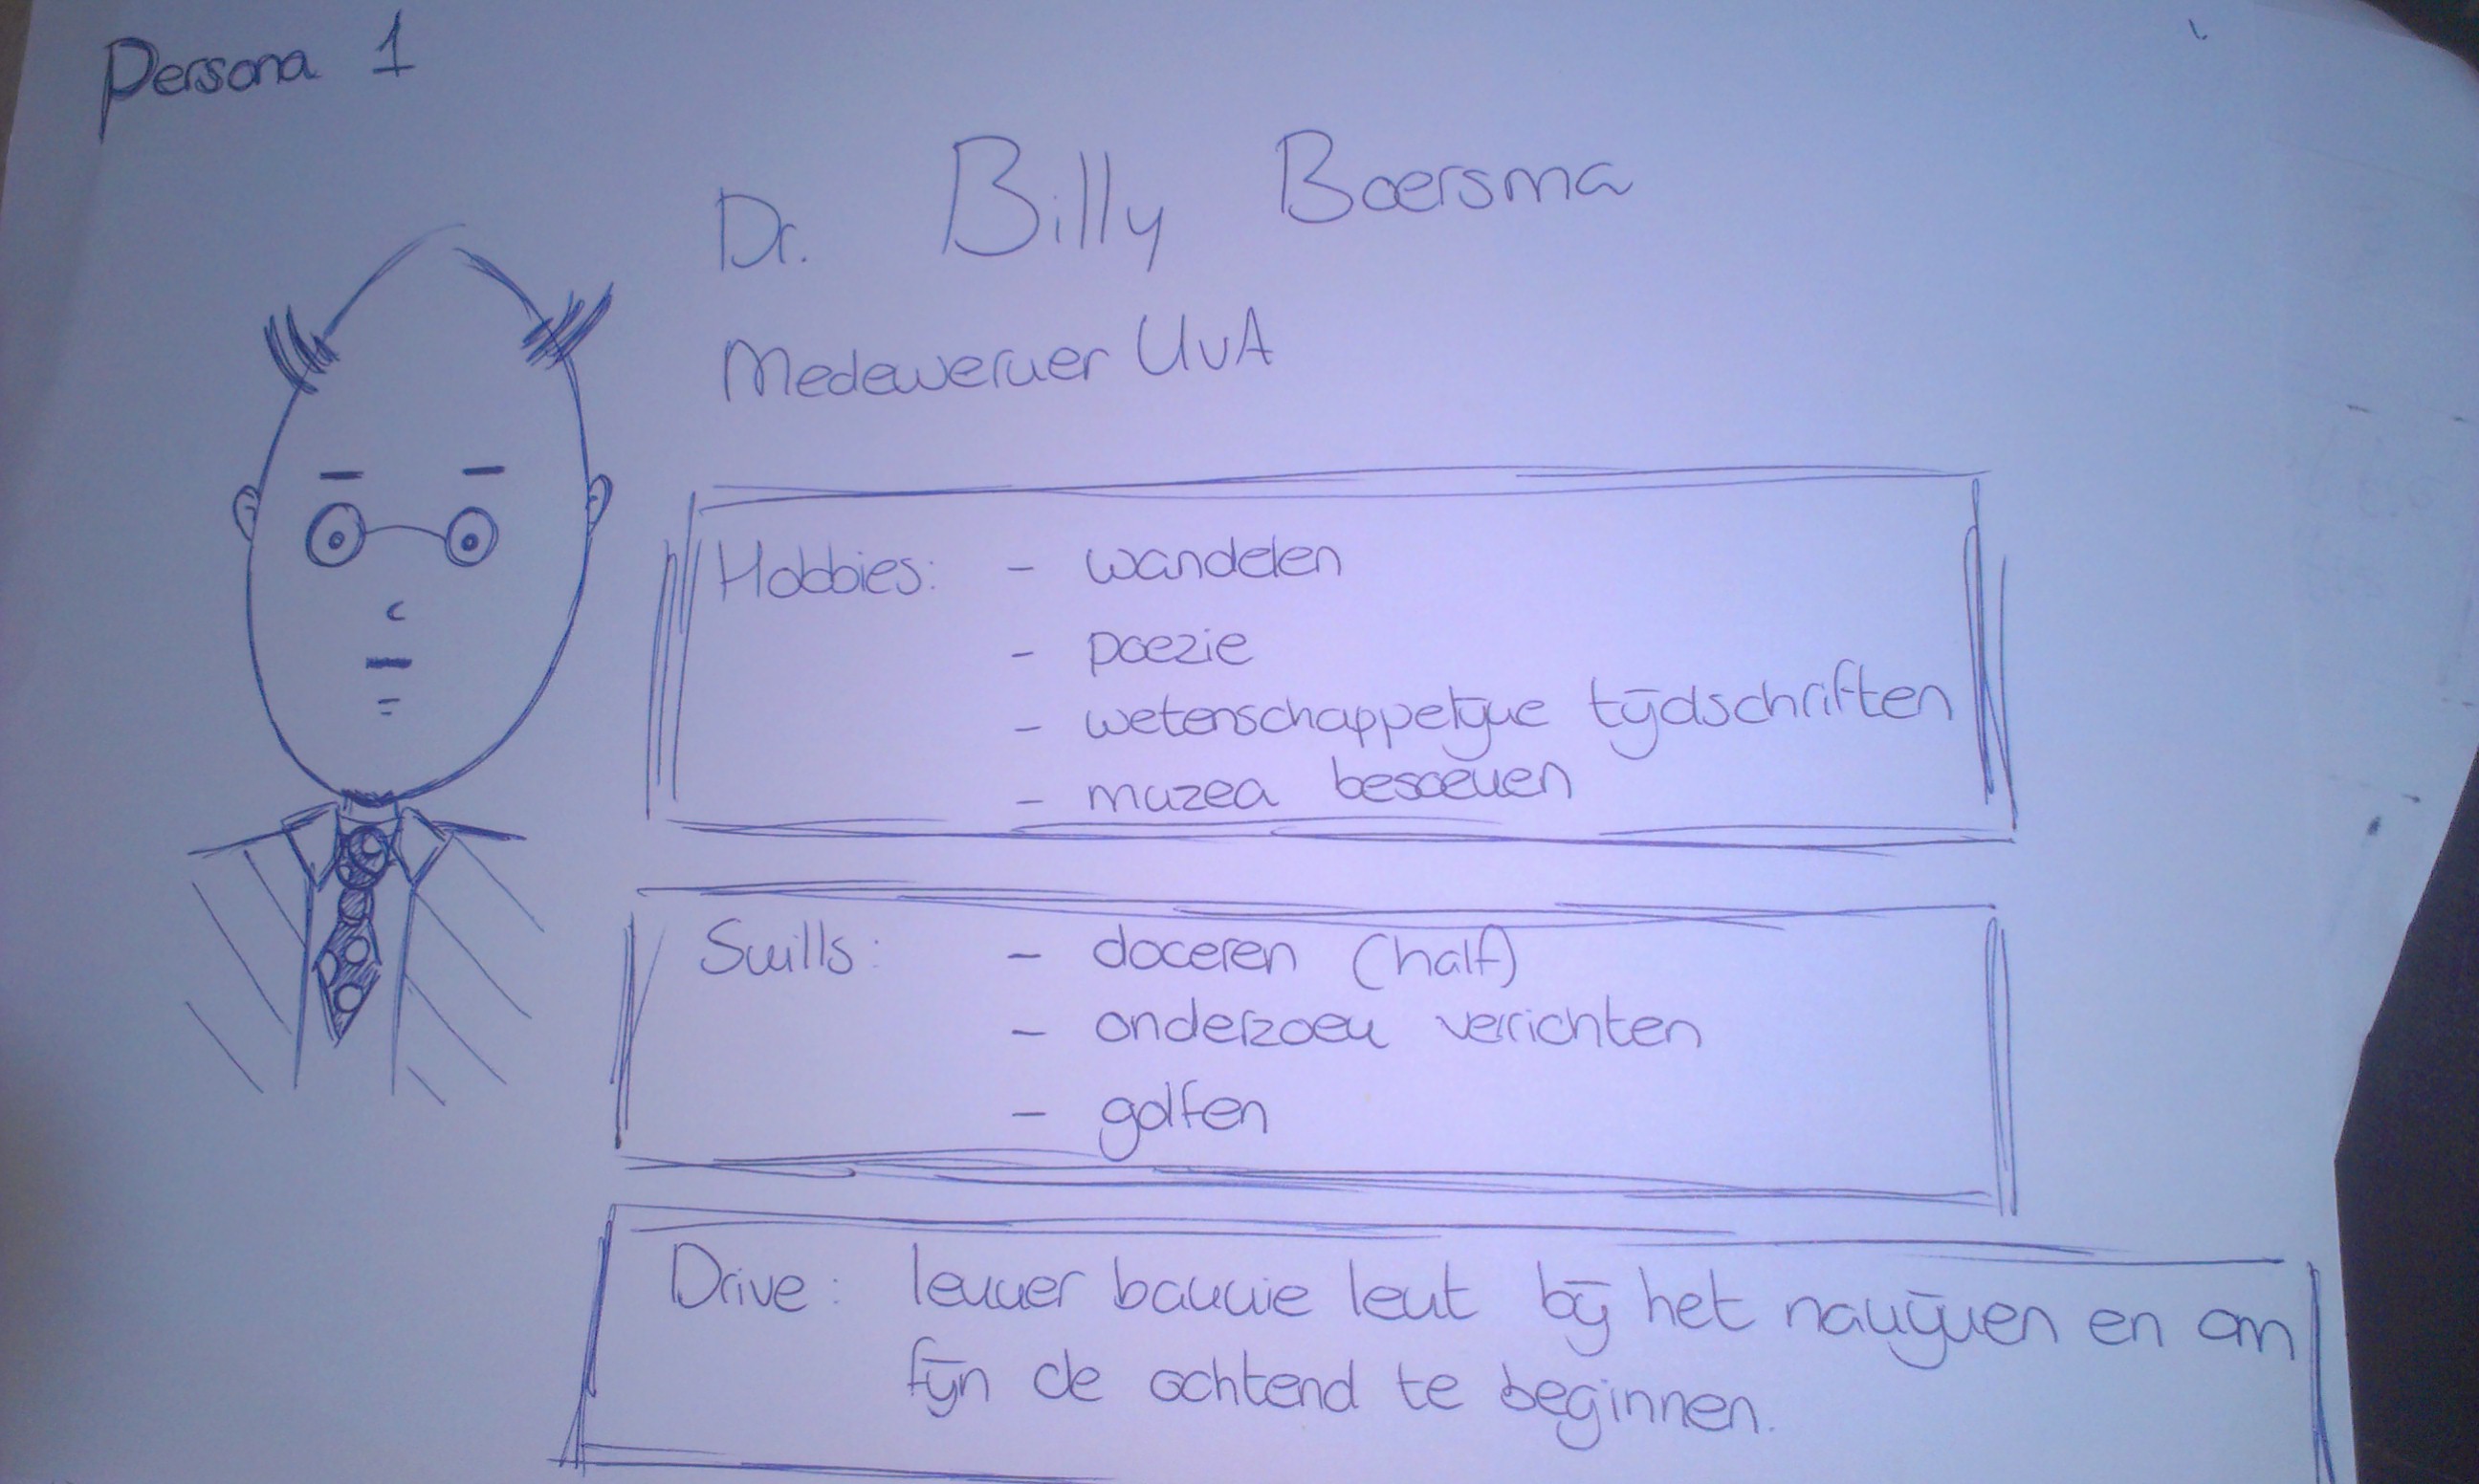 Persona 1
Dr. Billy Boersma
Medewerker UvA
Hobbies: - wandelen
- poezie
- wetenschappelijke tijdschriften
- muzea besoeken
Skills: - doceren (half)
- onderzoek verrichten
- golfen
Drive: lekker bakkie leut bij het nakijken en om
fijn de ochtend te beginnen.